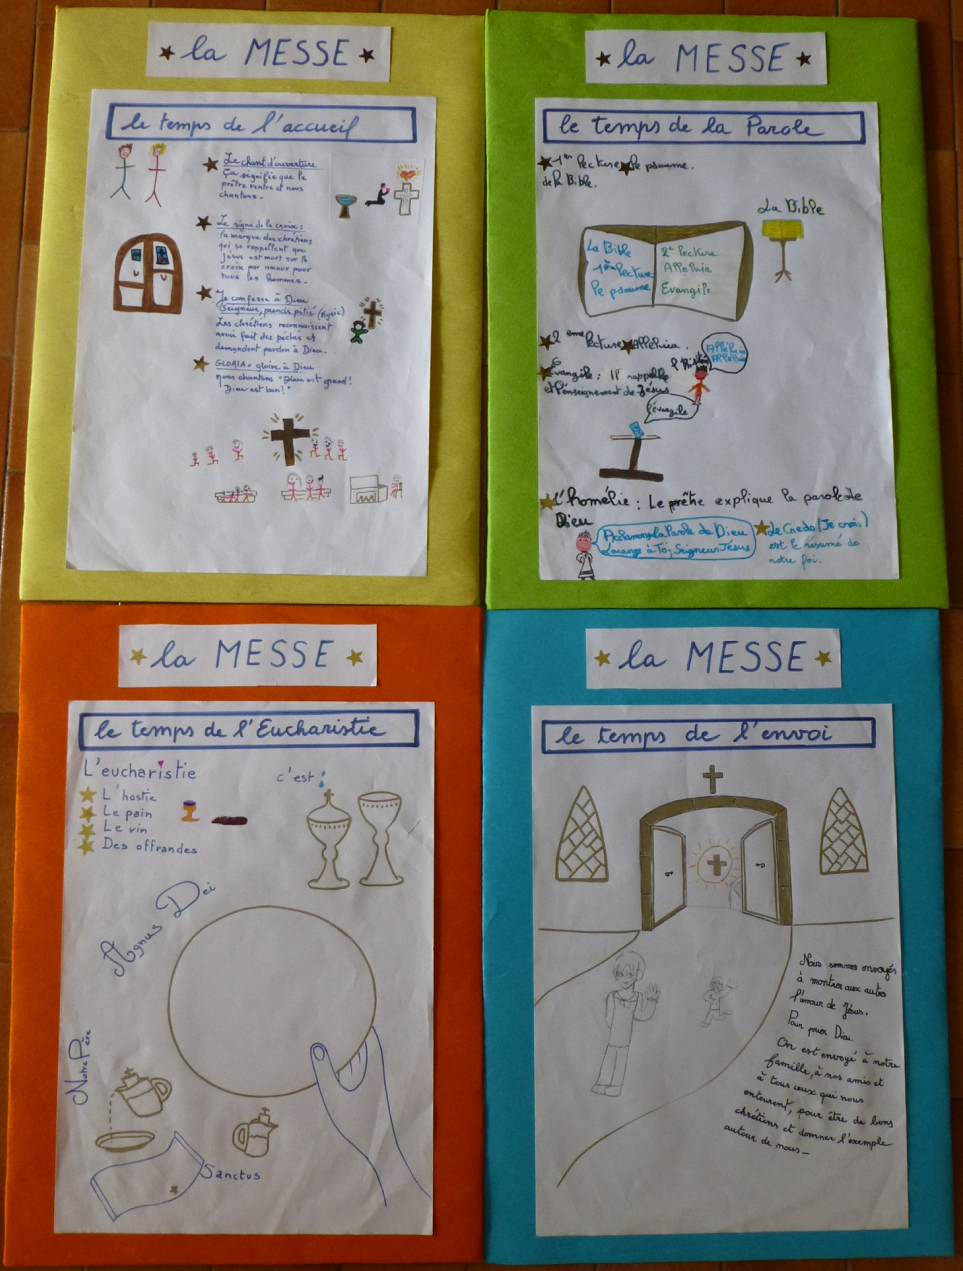 la MESSE
le temps de l'accueil
Le chant d'ouverture
Ça signifie que le
prêtre rentre et nous
chantons.
Le signe de la croix :
la marque des chrétiens
qui se rappellent que
Jésus est mort sur la
croix par amour pour
tous les hommes.
Je confesse à Dieu
Seigneur, prends pitié (Kyrie)
Les chrétiens reconnaissent
avoir fait des péchés et
demandent pardon à Dieu.
GLORIA = gloire à Dieu
nous chantons "Dieu est grand!
Dieu est bon!"
la MESSE
le temps de la Parole
1ère lecture le psaume.
de la Bible.
La Bible
La Bible
1ère lecture
le psaume
2e lecture
Alleluia
Evangile
2 eme lecture Alleluia.
Evangile : Il rappelle
et l'enseignement de Jésus
l'évangile
L'homélie : Le prêtre explique la parole de
Dieu
Acclamons la Parole de Dieu
Louange à Toi, Seigneur Jésus
Le Credo (Je crois)
est le résumé de
notre foi.
la MESSE
le temps de l'Eucharistie
L'eucharistie
c'est :
L'hostie
Le pain
Le vin
Des offrandes
Agnus Dei
Notre Père
Sanctus
la MESSE
le temps de l'envoi
Nous sommes envoyés
à montrer aux autres
l'amour de Jésus.
Pour prier Dieu
On est envoyé à notre
famille, à nos amis et
à tous ceux qui nous
entourent, pour être de bons
chrétiens et donner l'exemple
autour de nous_